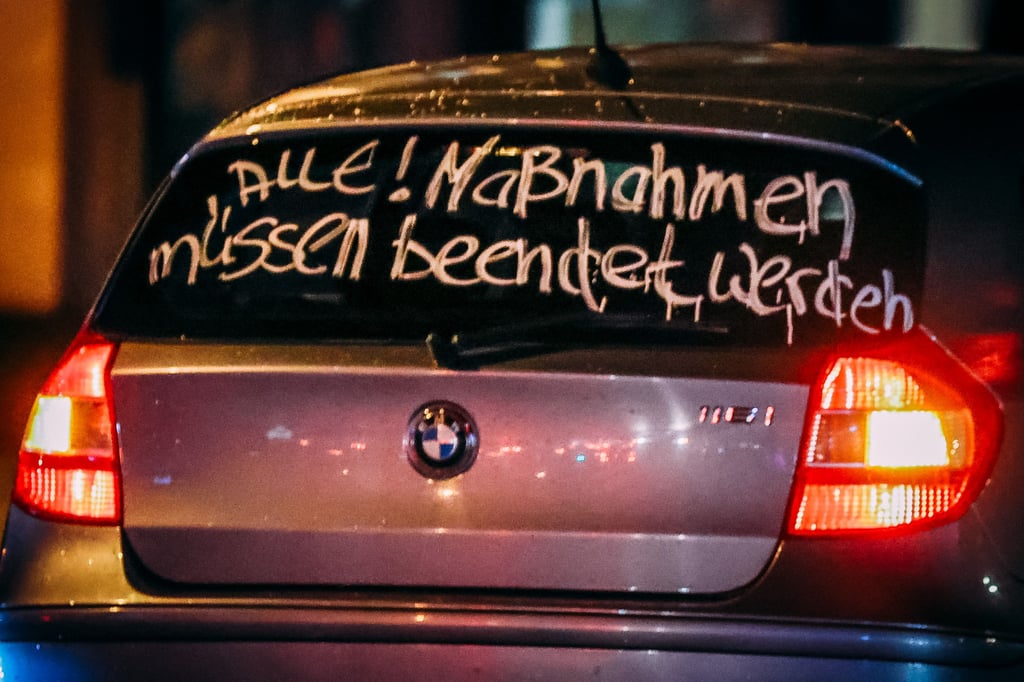 ALLE! Maßnahmen
müssen beendet werden
116i